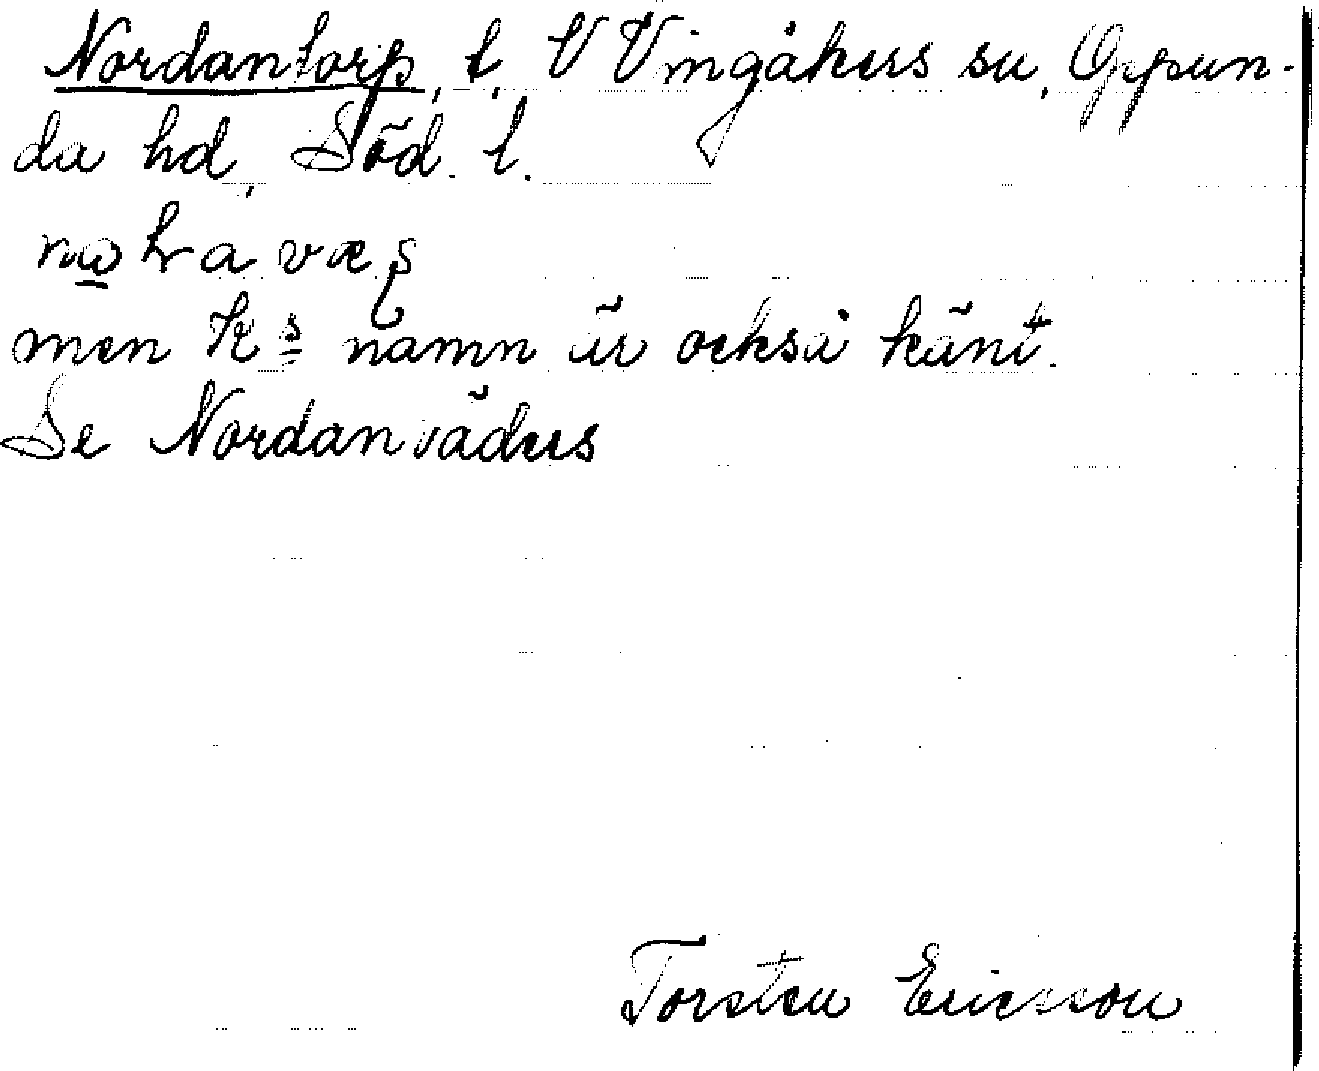 Nordantorp, t, V Vingåkers sn, Oppun-
da hd, Söd. l.
men k:s namn är också känt.
Se Nordanväders
Torsten Ericsson